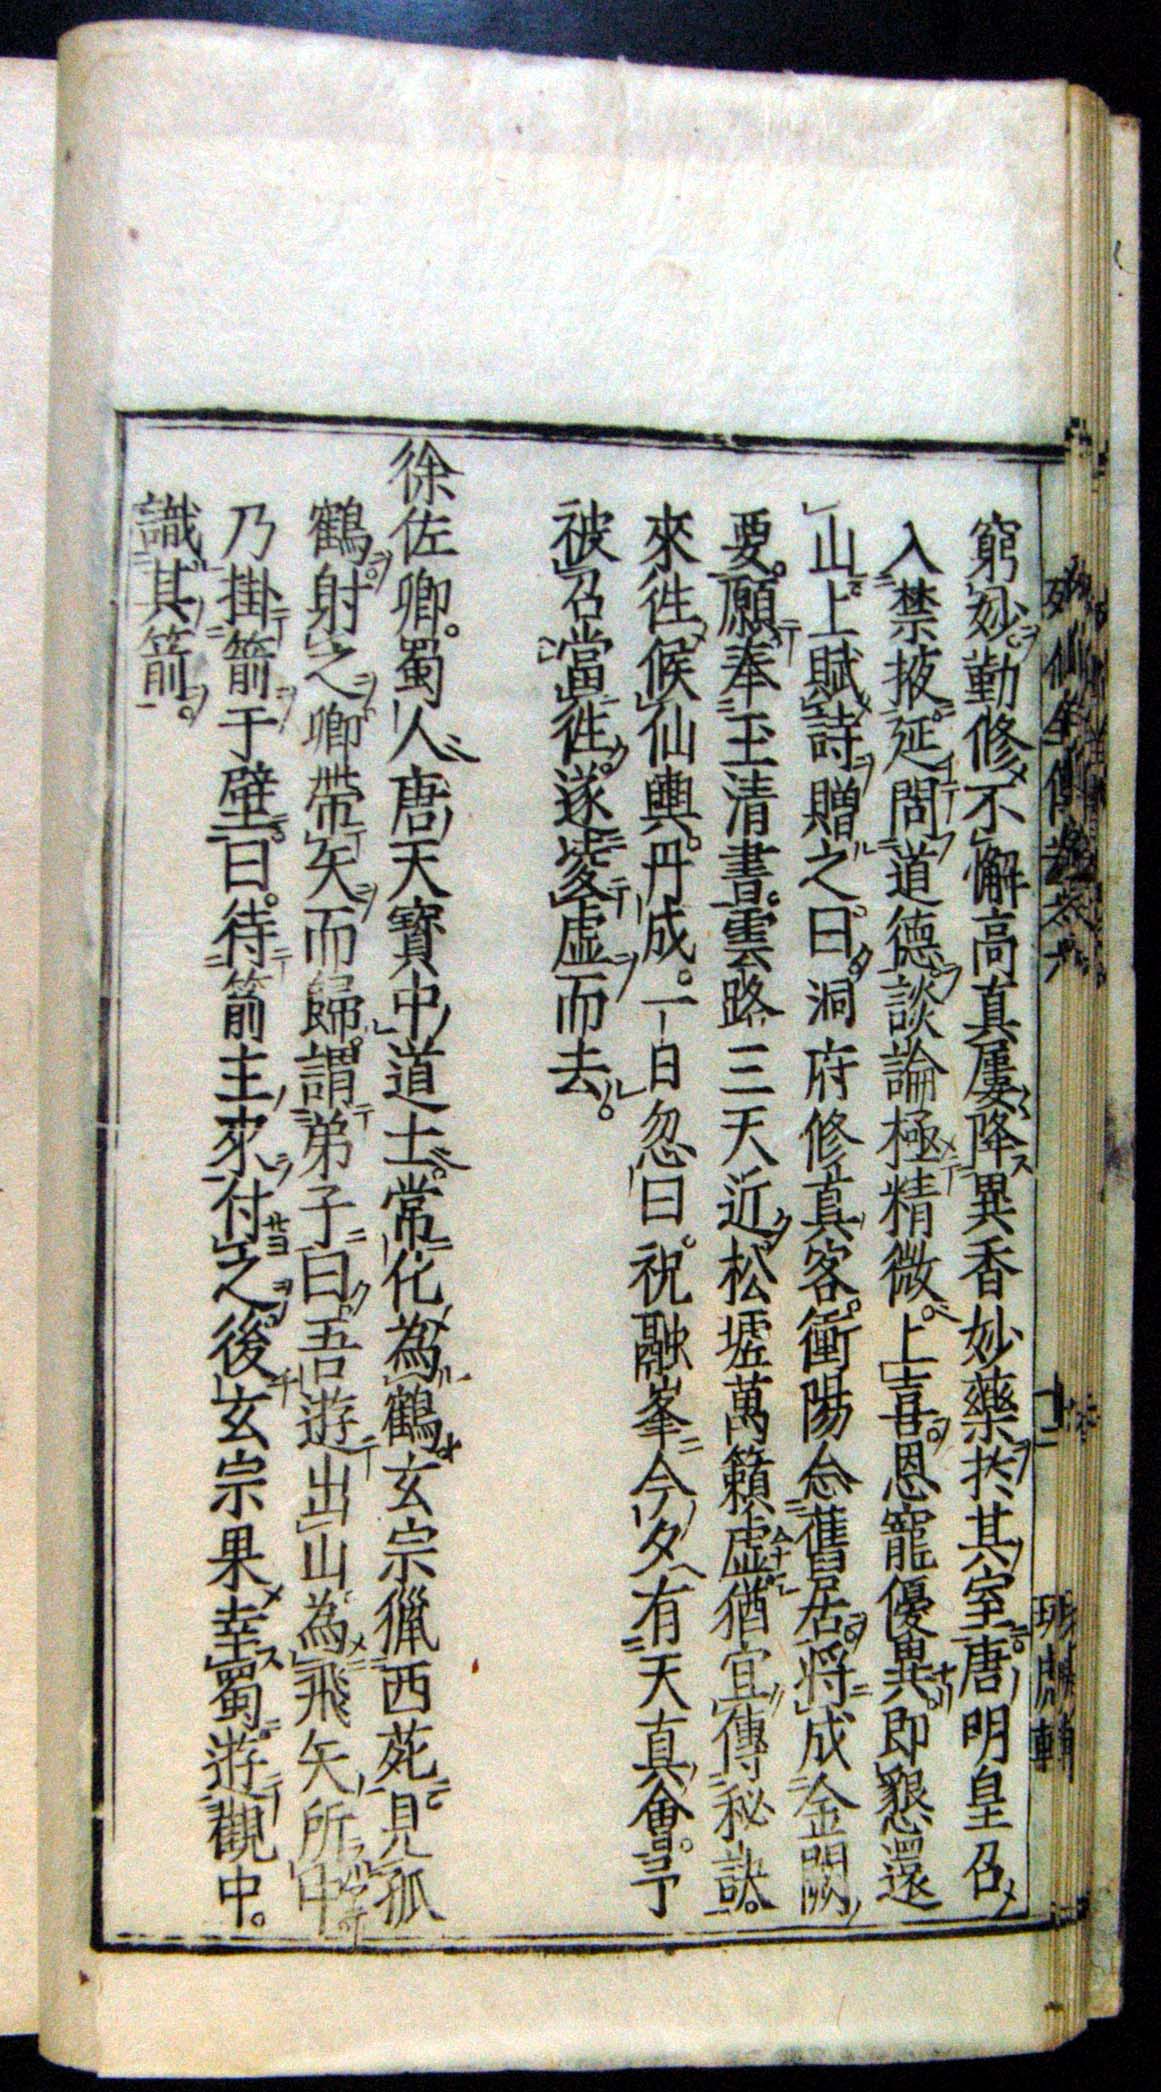 窮妙勤修不懈高真屢降異香妙藥於其室唐明皇召
入禁掖延問道德談論極精微。上喜恩寵優異即懇還
山。上賦詩贈之。曰。洞府修真客。衡陽念舊居。將成金闕
要。願奉玉清書。雲路三天近。松壚萬籟虛。猶宜傳秘訣。
來徃候仙輿。丹成。一日忽曰。祝融峯今夕有天真會。予
被召當徃。遂凌虛而去。
徐佐卿。蜀人唐天寶中道士。常化為鶴。玄宗獵西苑。見孤
鶴。射之卿帶矢而歸。謂弟子曰。吾遊出山。為飛矢所中
乃掛箭于壁。曰。待箭主來付之。後玄宗果幸蜀。遊觀中。
識其箭。